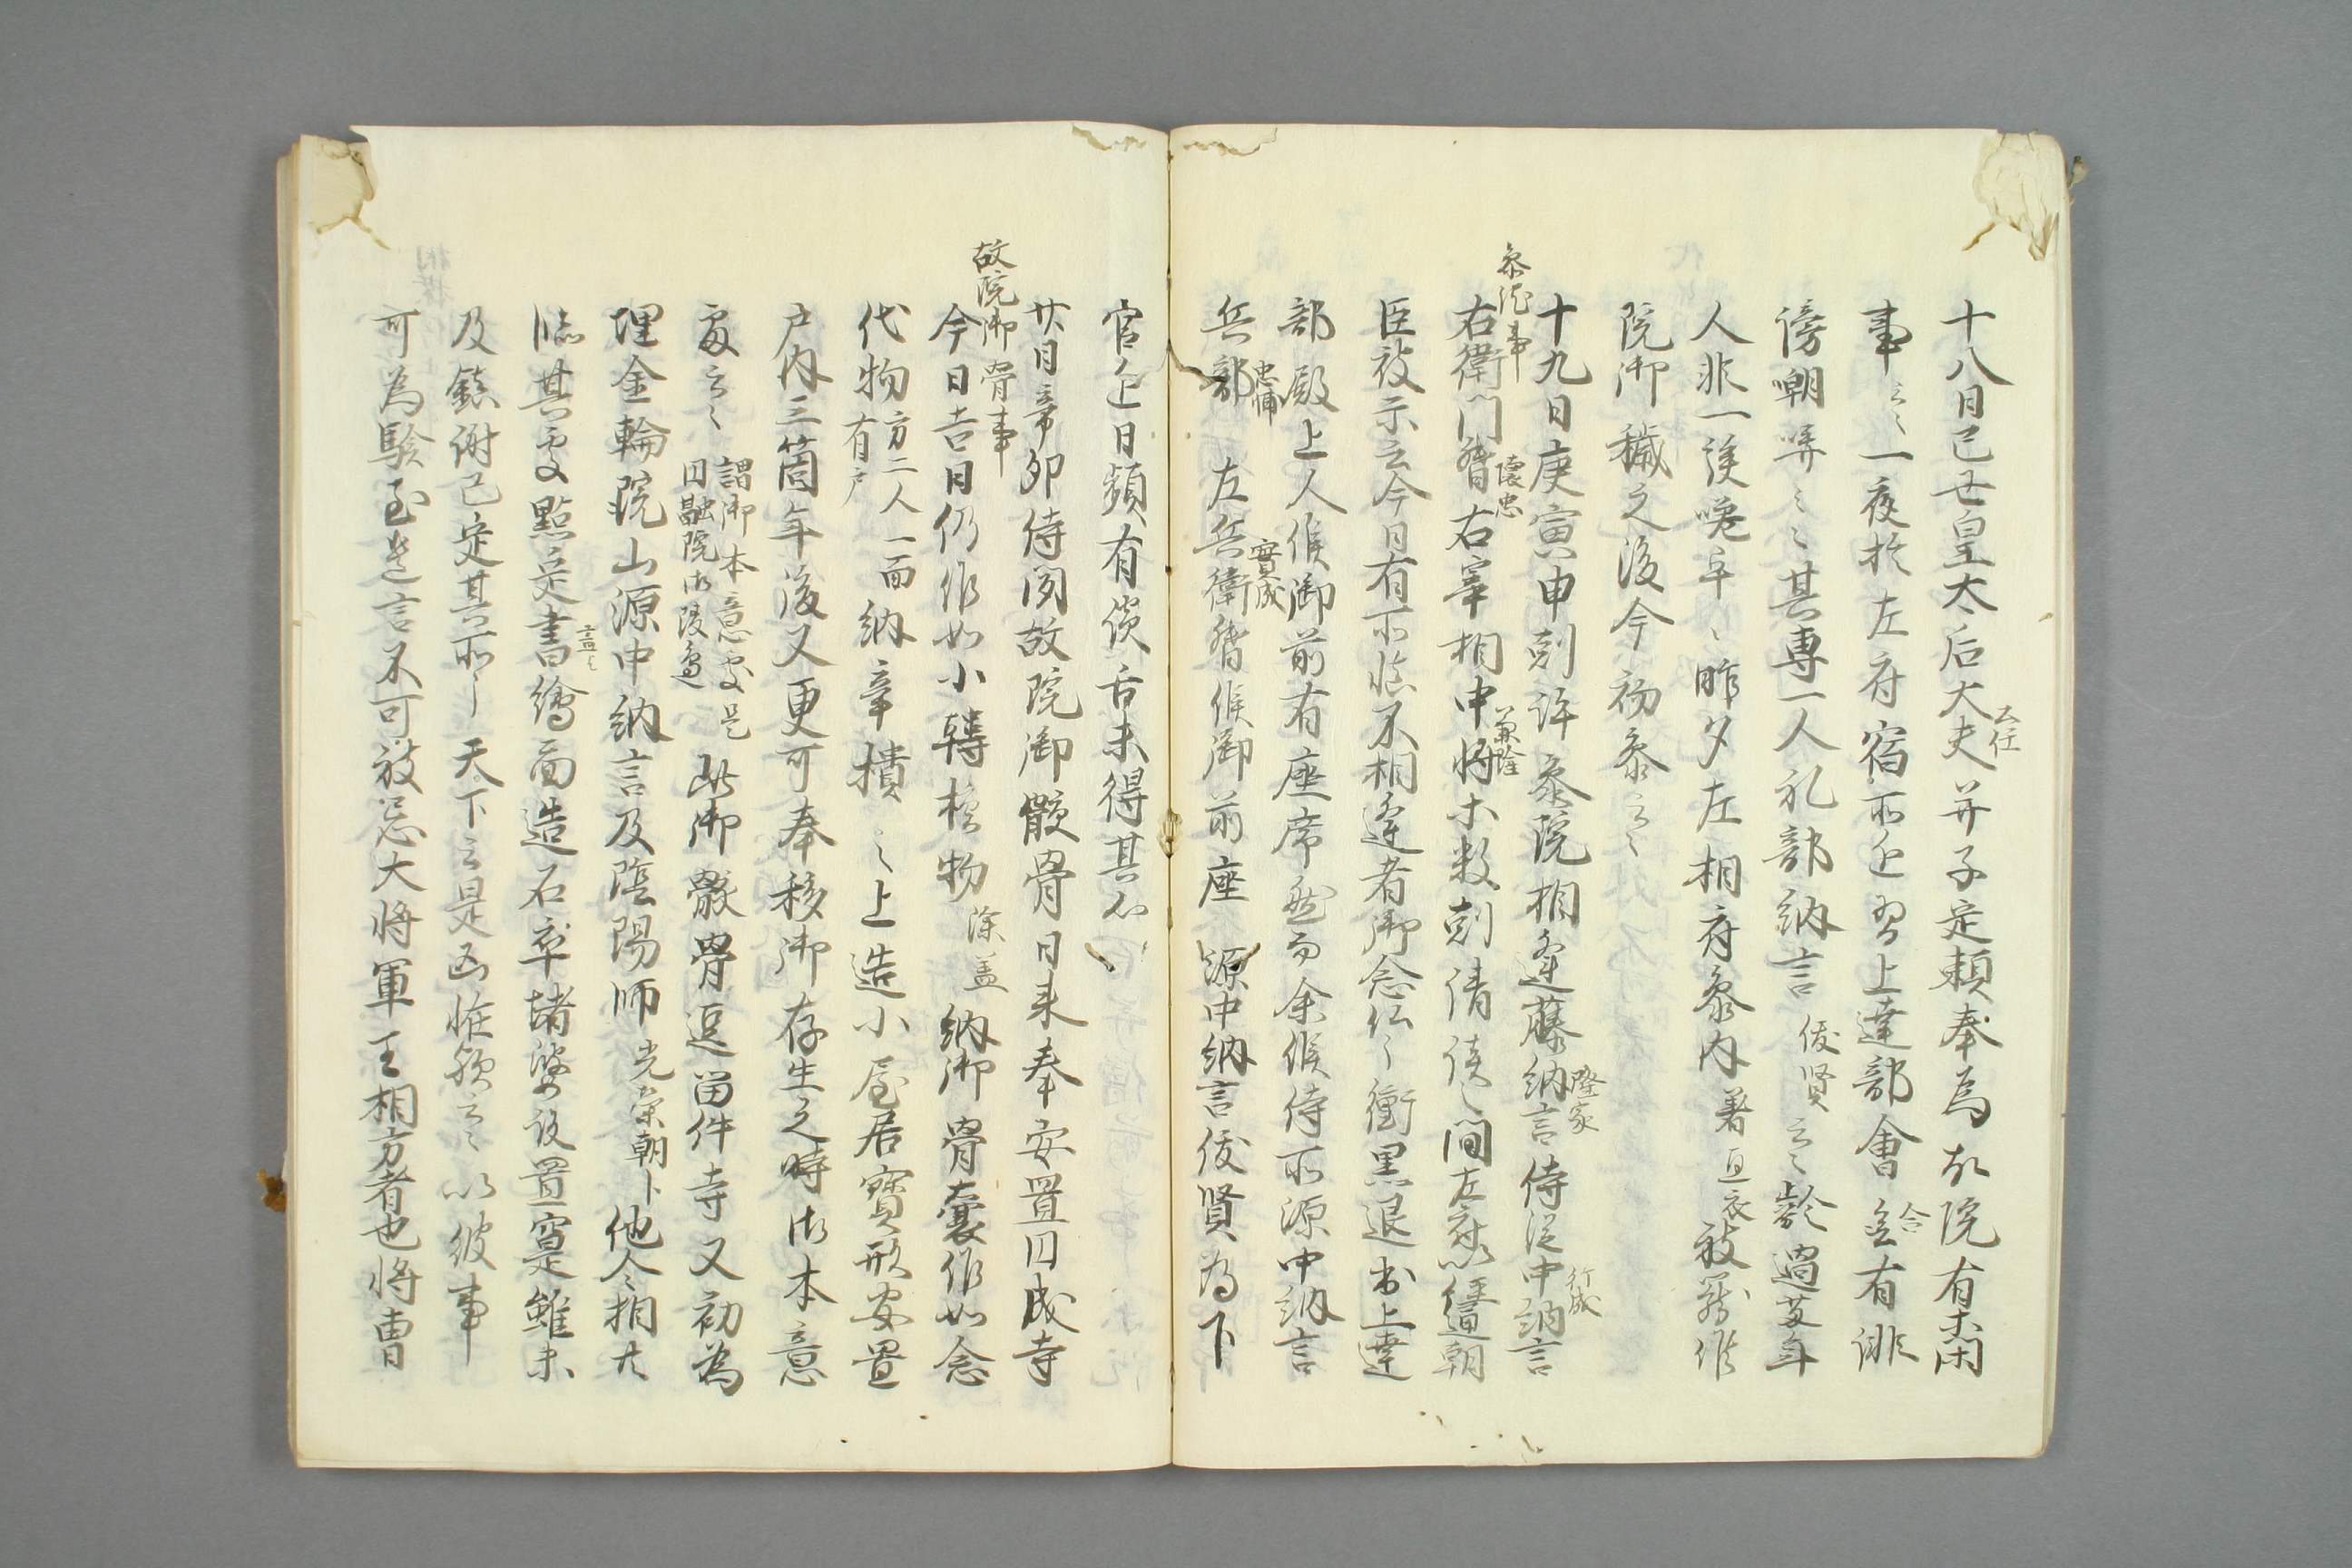 十八日己丑皇太后大夫公任并子定頼奉為故院有素閑
事云々一夜於左府宿所近習上達部會合並有誹
謗嘲哢々々其専一人礼部納言俊賢云々齢過艾年
人非一誤喚乎々昨夕左相府参内著直衣被羅作
院御穢之後今初参云々
参院事
十九日庚寅申剋許参院相逢藤納言隆家侍従中納言行成
右衛門督懐忠右宰相中将兼隆等数剋清談之間左府以経通朝
臣被示云今日有所慎不相逢者御念仏了衝黒退出上達
部殿上人候御前有座席然而余候侍所源中納言
兵部忠輔左兵衛督實成候御前座源中納言俊賢為下
官近日頻有讒舌未得其心
故院御骨事
廿日辛卯侍聞故院御骸骨日来奉安置円成寺
今日吉日仍作如小轉檢物除蓋納御骨嚢作如念
代物方二人一面有戸納辛櫃々上造小屋居寶形安置
戸内三箇年後又更可奉移御存生之時御本意
處云々謂御本意處是円融院御陵邊此御骸骨逗留件寺又初為
埋金輪院山源中納言及陰陽師光栄朝卜他人相共
臨其處點定書繪面造石卒堵婆設置窠雖未
及鎮謝已定其所了天下云是凶恠預云々以彼事
可為驗至是言不可被忌大将軍王相方者也将曹